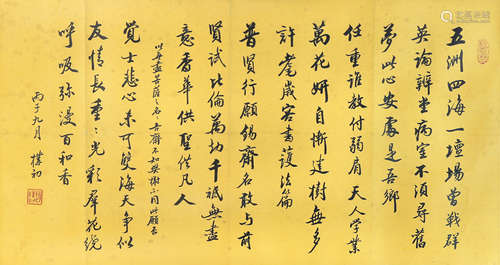 五洲四海一壇場曾戰群
英論辨堂病室不須尋舊
夢此心安處是吾鄉
任重誰教付弱肩天人學業
萬花妍自慚建樹無多
許耄歲容書護法篇
普賢行願錫齋名敢與前
賢試比倫萬劫千祇無盡
意香華供聖供凡人
以無盡
覺士悲心未可雙海天爭似
友情長重〻光彩羣花繞
呼吸弥漫百和香
丙子九月 樸初